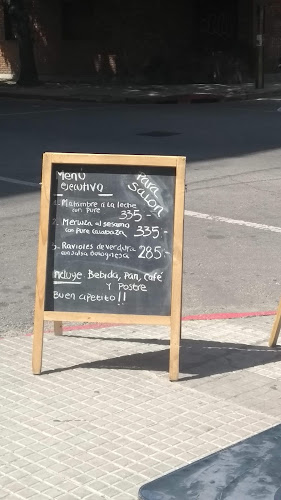 Menú
ejecutivo
Para
salon
1. Matambre a la leche
con puré 335.-
2. Merluza al sesamo
con pure calabaza 335.-
3. Ravioles de verdura
con salsa bolognesa 285.-
Incluye Bebida, Pan, Café
y Postre
Buen apetito!!